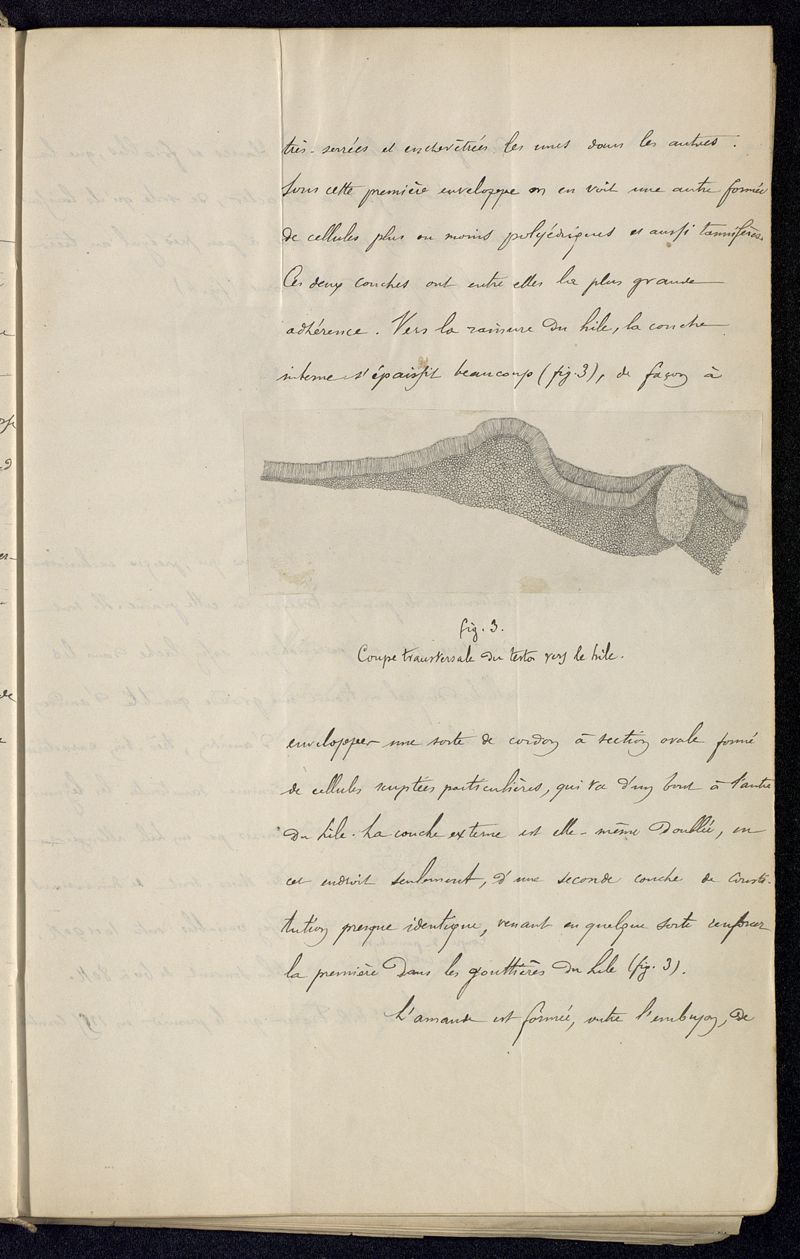 très-serrées et enchevêtrées les unes dans les autres.
Sous cette première enveloppe on en voit une autre formée
de cellules plus ou moins polyédriques et aussi tannifères.
Ces deux couches ont entre elles la plus grande
adhérence. Vers la rainure du hile, la couche
interne s'épaissit beaucoup (fig. 3), de façon à
fig. 3.
Coupe transversale du testa vers le hile.
envelopper une sorte de cordon à section ovale formé
de cellules particulières, qui va d'un bout à l'autre
du hile. La couche externe est elle-même doublée, en
cet endroit seulement, d'une seconde couche de consti-
tution presque identique, venant en quelque sorte renforcer
la première dans les gouttières du hile (fig. 3).
L'amande est formée, outre l'embryon, de